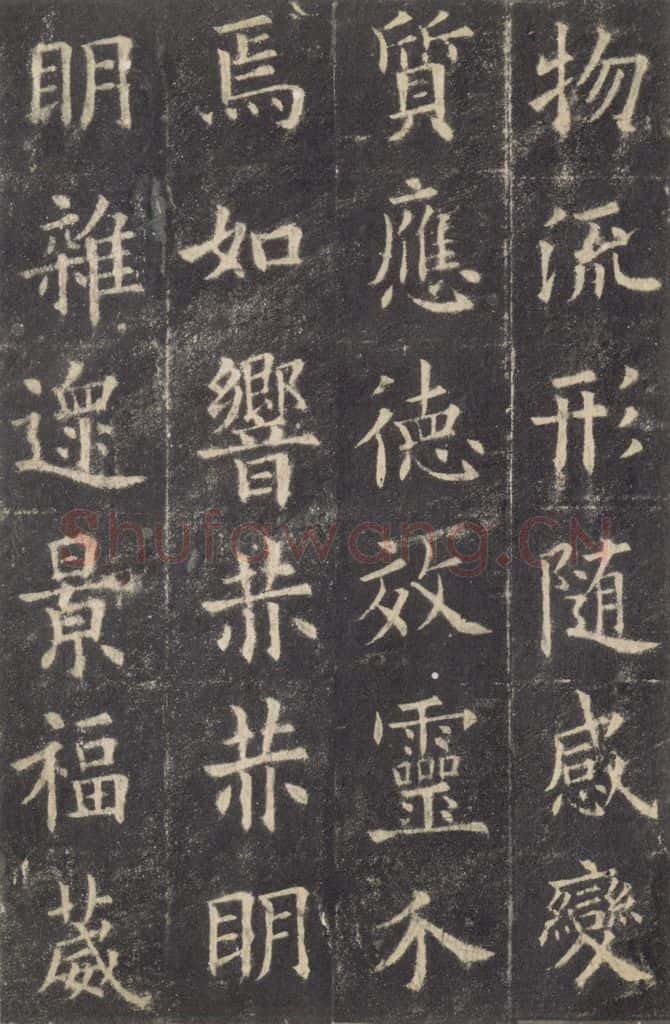 物流形隨感變
質應德效靈不
焉如響赫赫明
明雜遝景福葳
Shufawang.CN